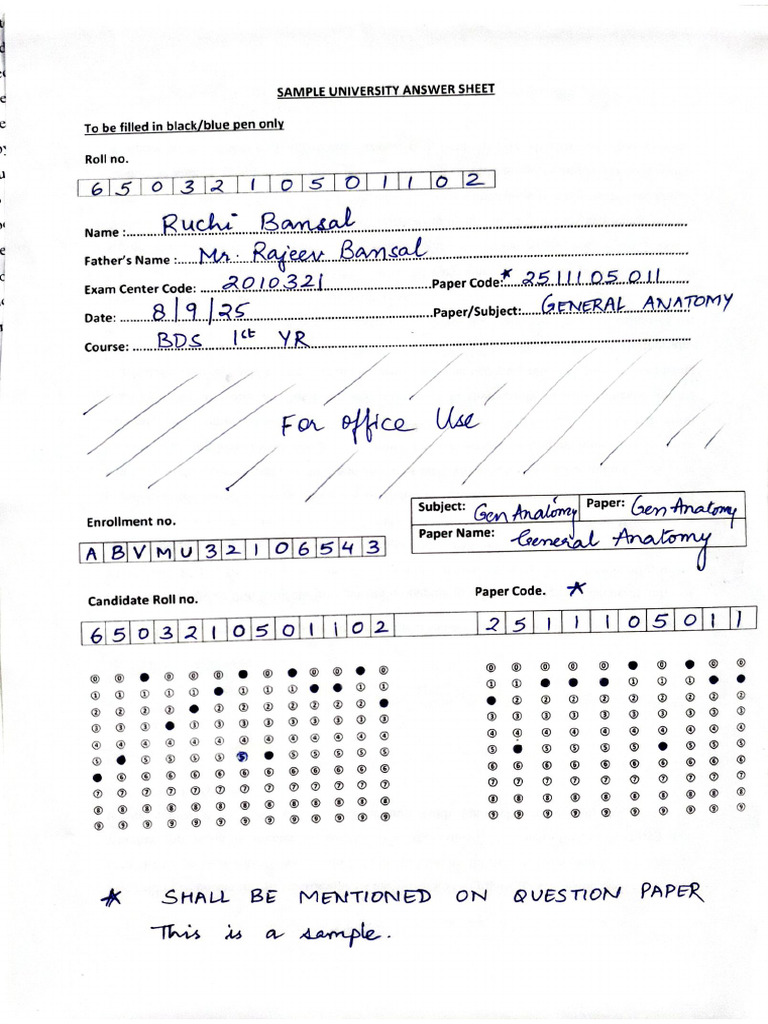 SAMPLE UNIVERSITY ANSWER SHEET
To be filled in black/blue pen only
Roll no.
6 5 0 3 2 1 0 5 0 1 1 0 2
Name : Ruchi Bansal
Father's Name : Mr. Rajeev Bansal
Exam Center Code: 2010321 Paper Code:* 2511105011
Date: 8/9/25 Paper/Subject: GENERAL ANATOMY
Course: BDS 1st YR
For office Use
Subject: Gen Anatomy Paper: Gen Anatomy
Enrollment no.
Paper Name: General Anatomy
A B V M U 3 2 1 0 6 5 4 3
Candidate Roll no. Paper Code. *
6 5 0 3 2 1 0 5 0 1 1 0 2 2 5 1 1 1 0 5 0 1 1
0 0 ● 0 0 0 ● 0 ● 0 0 ● 0 0 0 0 0 0 ● 0 ● 0 0
1 1 1 1 1 ● 1 1 1 ● ● 1 1 1 1 ● ● ● 1 1 1 ● ●
2 2 2 2 ● 2 2 2 2 2 2 2 ● ● 2 2 2 2 2 2 2 2 2
3 3 3 ● 3 3 3 3 3 3 3 3 3 3 3 3 3 3 3 3 3 3 3
4 4 4 4 4 4 4 4 4 4 4 4 4 4 4 4 4 4 4 4 4 4 4
5 ● 5 5 5 5 5 ● 5 5 5 5 5 5 ● 5 5 5 5 ● 5 5 5
● 6 6 6 6 6 6 6 6 6 6 6 6 6 6 6 6 6 6 6 6 6 6
7 7 7 7 7 7 7 7 7 7 7 7 7 7 7 7 7 7 7 7 7 7 7
8 8 8 8 8 8 8 8 8 8 8 8 8 8 8 8 8 8 8 8 8 8 8
9 9 9 9 9 9 9 9 9 9 9 9 9 9 9 9 9 9 9 9 9 9 9
* SHALL BE MENTIONED ON QUESTION PAPER
This is a sample.